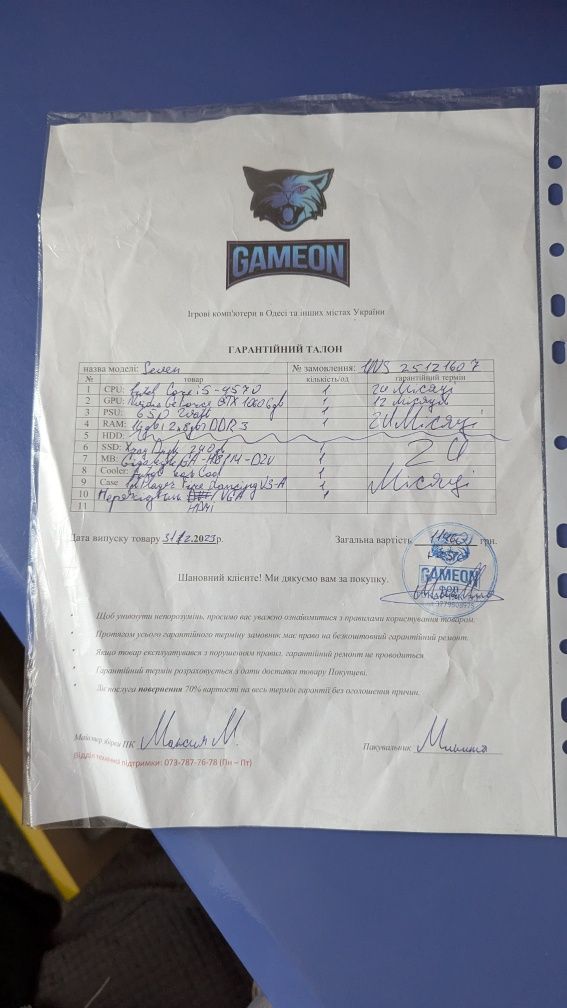 GAMEON
Ігрові комп'ютери в Одесі та інших містах України
ГАРАНТІЙНИЙ ТАЛОН
назва моделі: Seven № замовлення: UNS 25121607
№ товар кількість/од гарантійний термін
1 CPU: Intel Core i5-4570 1 24 місяці
2 GPU: Nvidia GeForce GTX 1060 6gb 1 12 місяців
3 PSU: 650 Watt 1
4 RAM: 16gb (2x8gb) DDR3 1 24 місяці
5 HDD:
6 SSD: Xray Disk 240gb 1 24
7 MB: Gigabyte GA-H81M-D2V 1
8 Cooler: Cool 1 місяці
9 Case 1
10 Перехідник VGA 1
11 HDMI
Дата випуску товару 31.12.2023р. Загальна вартість грн.
GAMEON
ФОП
Шановний клієнте! Ми дякуємо вам за покупку.
Щоб уникнути непорозумінь, просимо вас уважно ознайомитися з правилами користування товаром.
Протягом усього гарантійного терміну замовник має право на безкоштовний гарантійний ремонт.
Якщо товар експлуатувався з порушенням правил, гарантійний ремонт не проводиться.
Гарантійний термін розраховується з дати доставки товару Покупцеві.
Діє послуга повернення 70% вартості на весь термін гарантії без оголошення причин.
Майстер збірки ПК Максим М. Пакувальник
Відділ технічної підтримки: 073-787-76-78 (Пн – Пт)